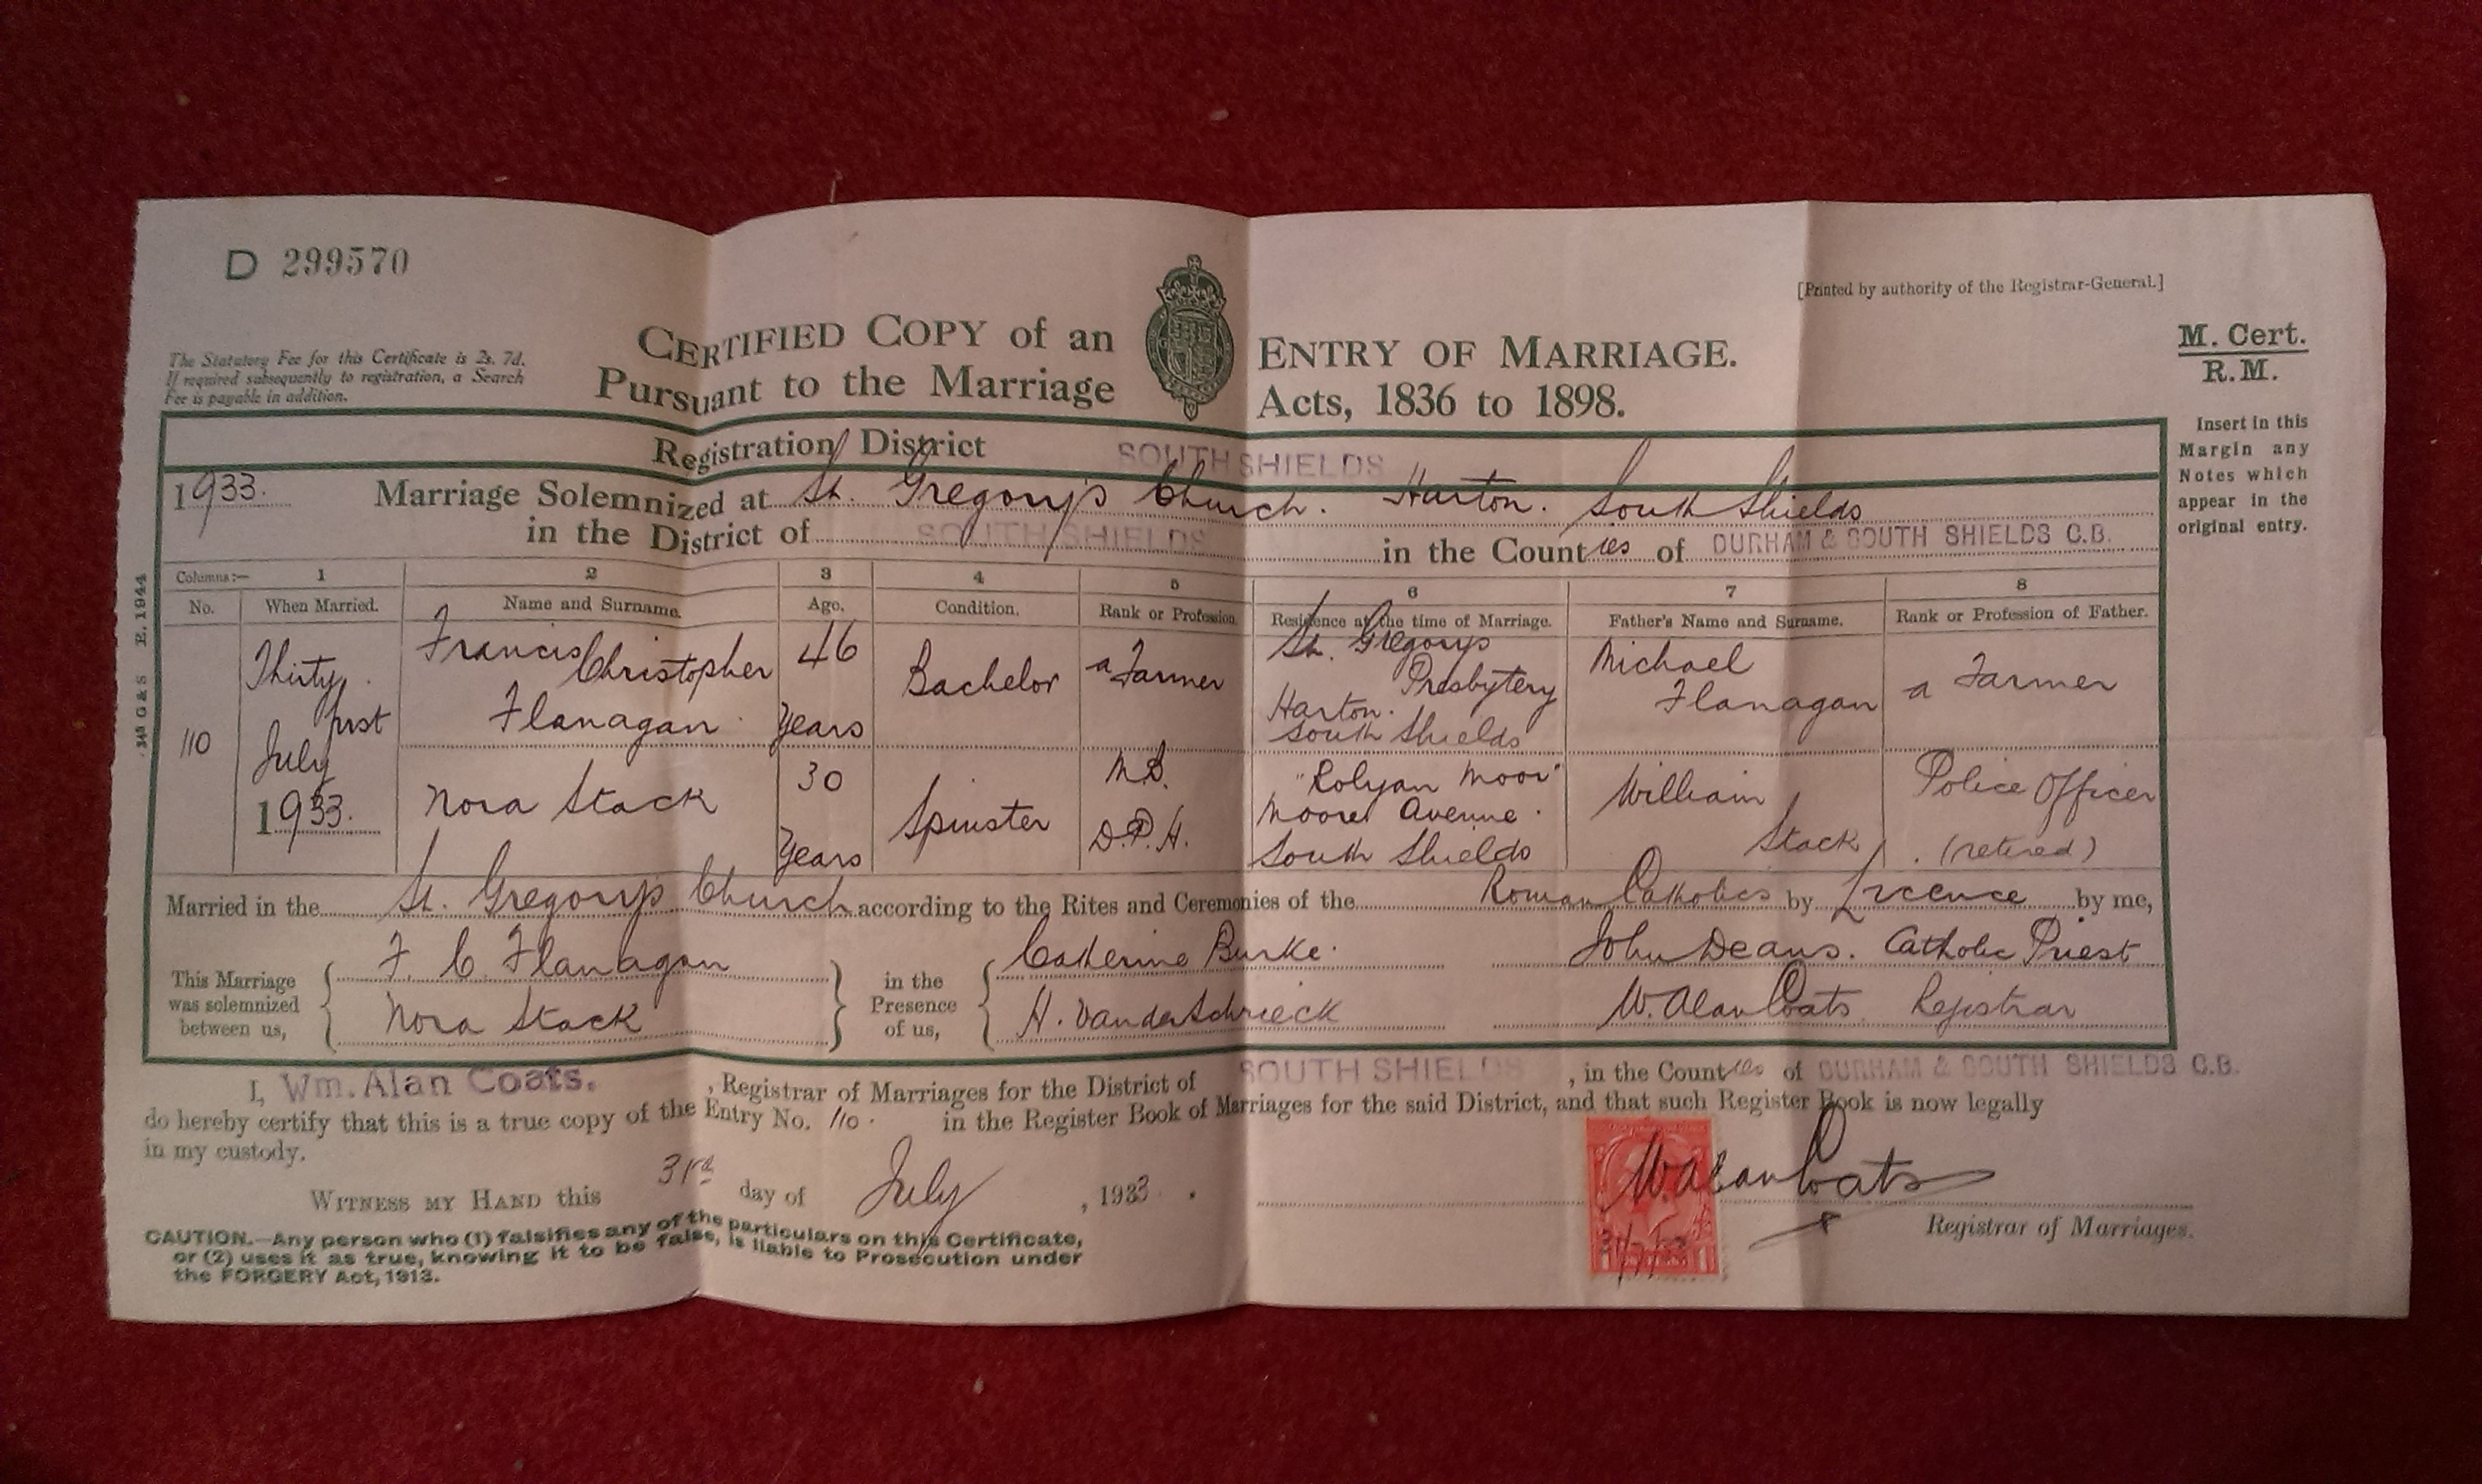 D 299570
[Printed by authority of the Registrar-General.]
CERTIFIED COPY of an ENTRY OF MARRIAGE.
Pursuant to the Marriage Acts, 1836 to 1898.
M. Cert.
R.M.
The Statutory Fee for this Certificate is 2s. 7d.
If required subsequently to registration, a Search
Fee is payable in addition.
Insert in this
Margin any
Notes which
appear in the
original entry.
Registration District SOUTH SHIELDS
1933. Marriage Solemnized at St. Gregory's Church. Harton. South Shields
in the District of SOUTH SHIELDS in the Counties of DURHAM & SOUTH SHIELDS C.B.
Columns:— 1 2 3 4 5 6 7 8
No. When Married. Name and Surname. Age. Condition. Rank or Profession. Residence at the time of Marriage. Father's Name and Surname. Rank or Profession of Father.
110 Thirty first July 1933.
Francis Christopher Flanagan 46 Years Bachelor a Farmer St. Gregorys Presbytery Harton. South Shields Michael Flanagan a Farmer
Nora Stack 30 Years Spinster M.B. D.P.H. Moore Avenue. South Shields William Stack Police Officer (retired)
Married in the St. Gregory's Church according to the Rites and Ceremonies of the Roman Catholics by Licence by me,
This Marriage was solemnized between us,
F. C. Flanagan
Nora Stack
in the Presence of us,
Catherine Burke.
H. VanderSchrieck
John Deans. Catholic Priest
W. Alan Coats Registrar
I, Wm. Alan Coats. , Registrar of Marriages for the District of SOUTH SHIELDS , in the Counties of DURHAM & SOUTH SHIELDS C.B.
do hereby certify that this is a true copy of the Entry No. 110. in the Register Book of Marriages for the said District, and that such Register Book is now legally
in my custody.
WITNESS MY HAND this 31st day of July , 1933.
W. Alan Coats
Registrar of Marriages.
31/7/33
CAUTION.—Any person who (1) falsifies any of the particulars on this Certificate,
or (2) uses it as true, knowing it to be false, is liable to Prosecution under
the FORGERY Act, 1913.